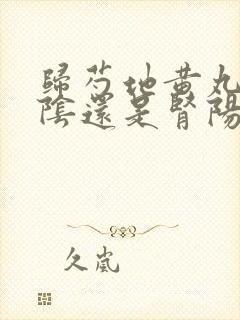 歸芍地黃丸
陰還是腎陽
久嵐